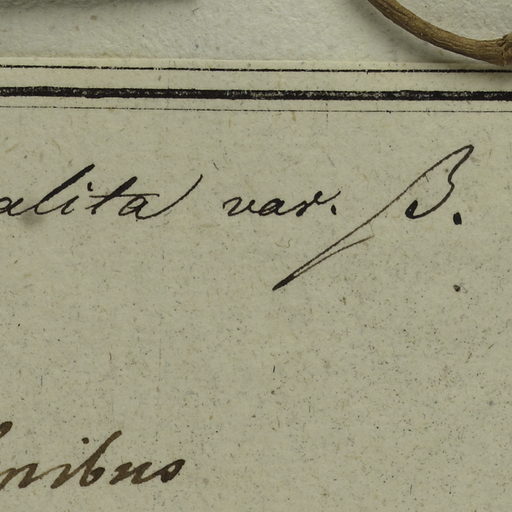 alita var. β.
nibus